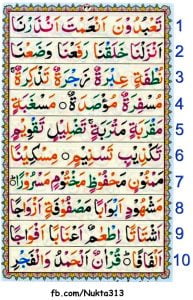 تَعْبُدُوْنَ اَنْعَمْتَ اَنْذَرْنَا 1
اَنْزَلْنَا خَلَقْنَا رَفَعْنَا وَضَعْنَا 2
نُطْفَةٍ عِبْرَةً نَخِرَةً تَذْكِرَةٌ 3
مُسْفِرَةٌ مُؤْصَدَةٌ مَسْغَبَةٍ 4
مَقْرَبَةٍ مَتْرَبَةٍ تَضْلِيْلٍ تَقْوِيْمٍ 5
تَكْذِيْبٍ تَسْنِيْمٍ مِسْكِيْنًا 6
مَمْنُوْنٍ مَحْفُوْظٍ مَخْتُوْمٍ مَسْرُوْرًا 7
مَشْهُوْدٍ اَبْوَابًا مَصْفُوْفَةٌ اَزْوَاجًا 8
اَشْتَاتًا اِطْعٰمٌ اَبْنَآءًا اَفْوَاجًا 9
اَلْفَافًا قُرْاٰنٌ اَلْحَمْدُ وَالْفَجْرِ 10
fb.com/Nukta313